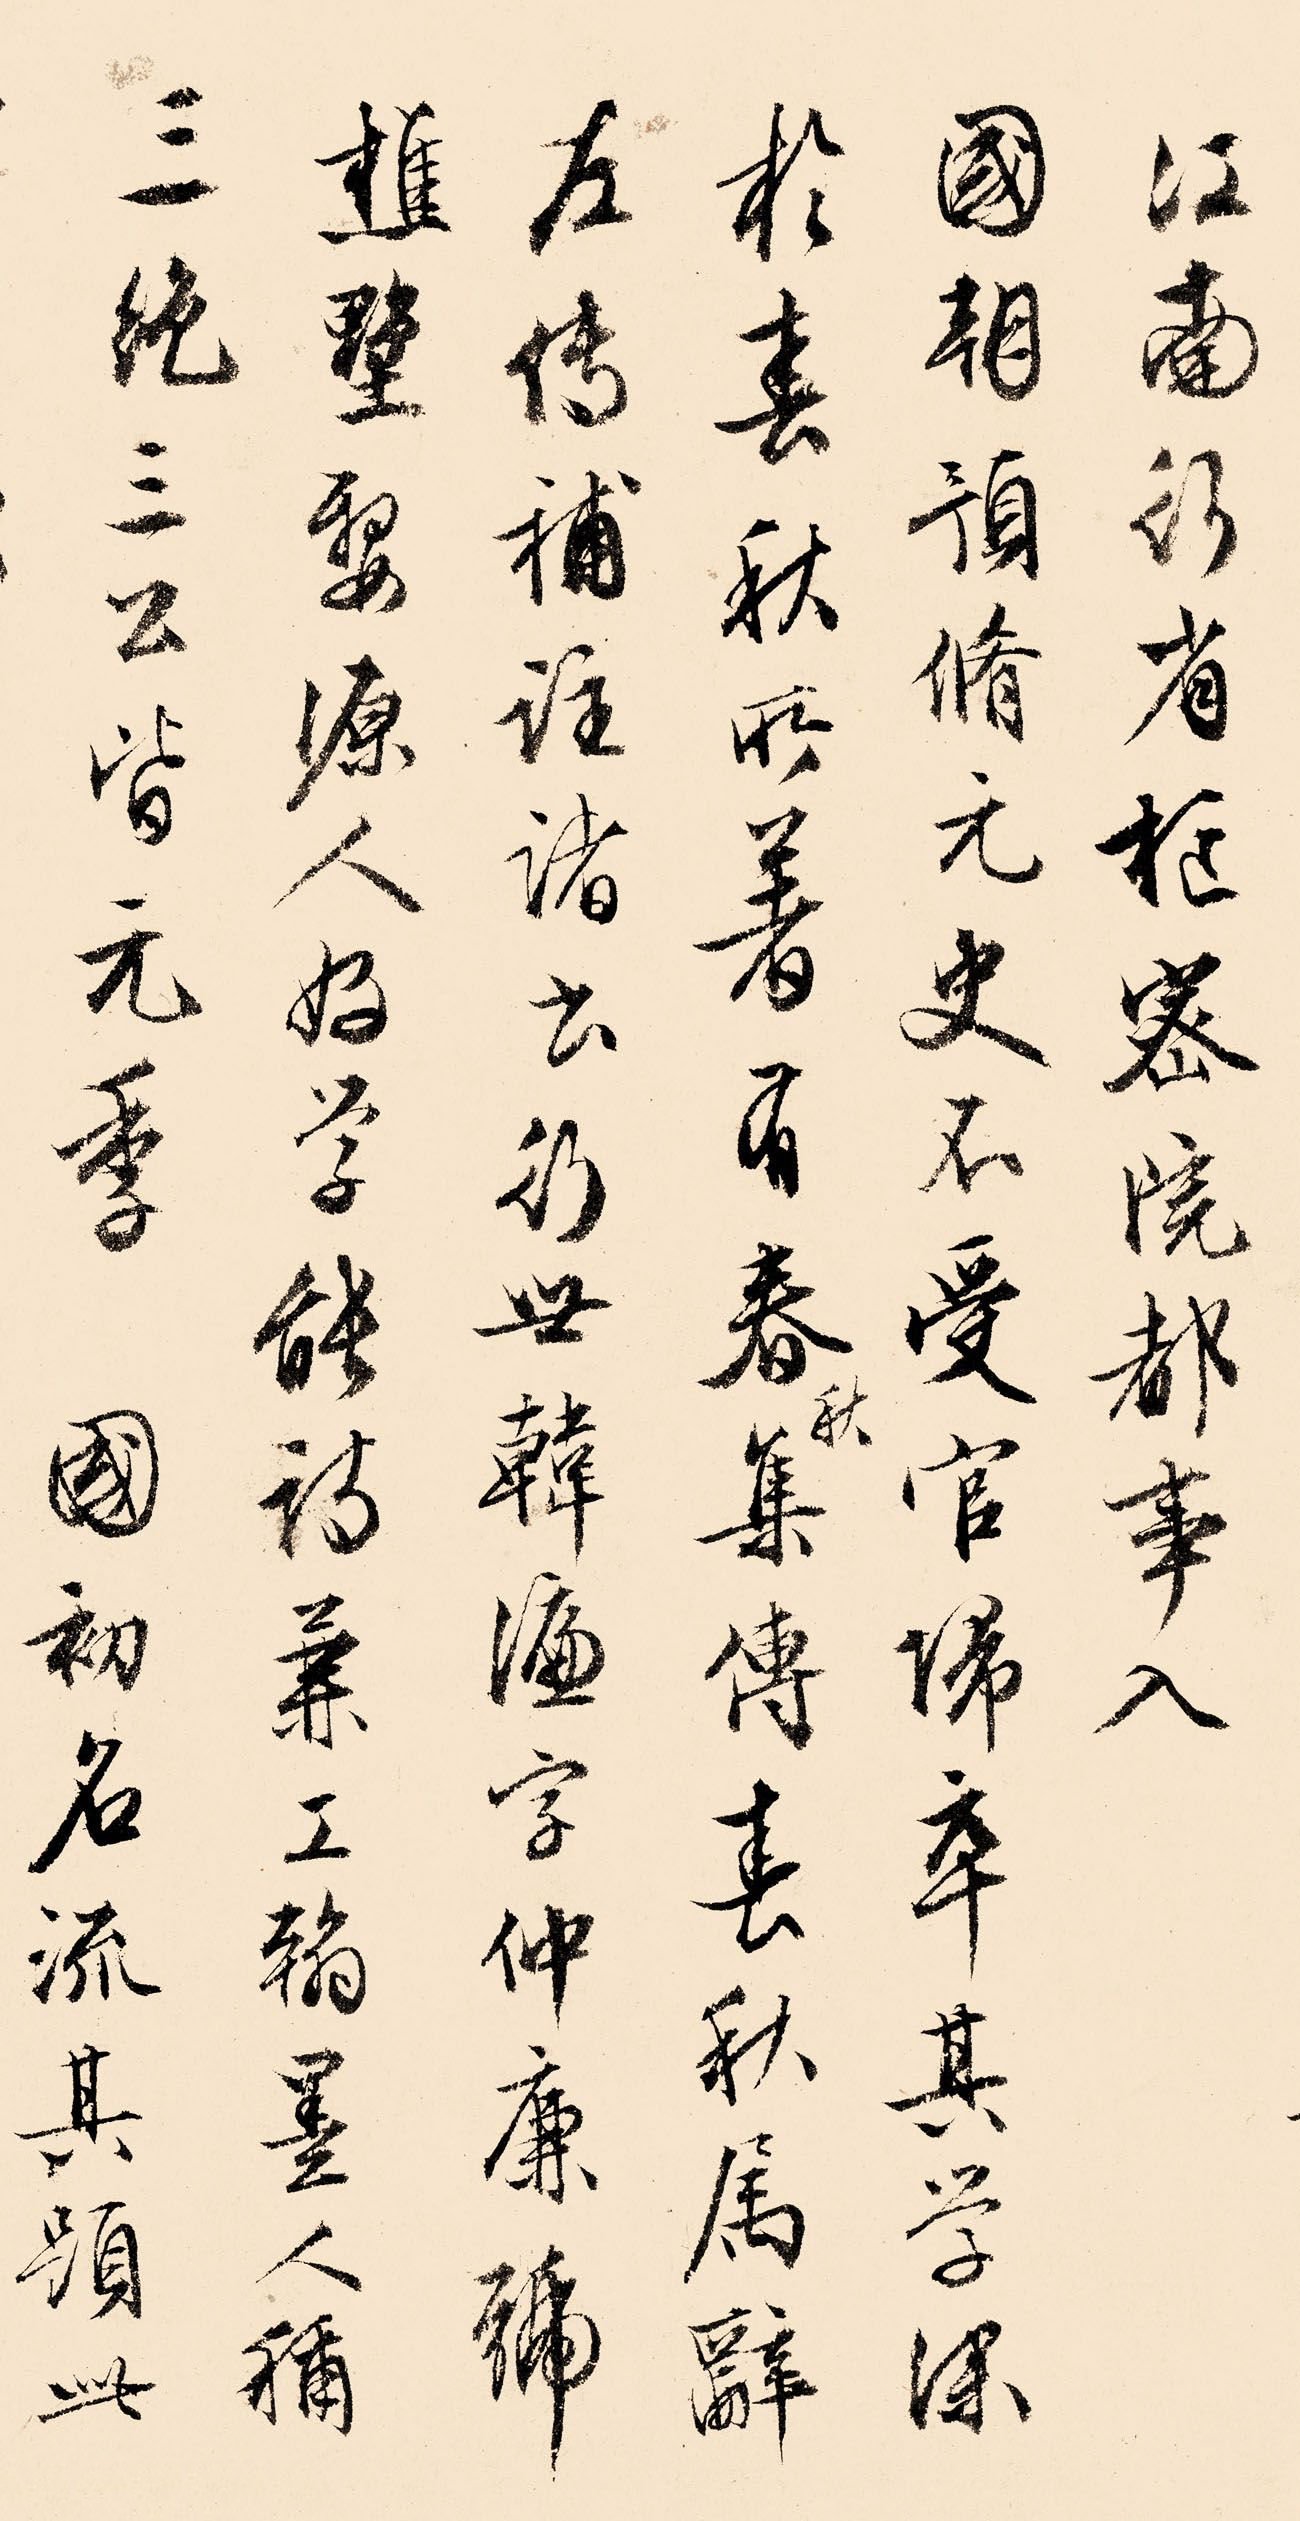 江南行省枢密院都事入
國朝預脩元史不受官歸卒其學深
於春秋所著有春秋集傳春秋属辭
左传補註諸書行世韓濂字仲廉號
樵墅婺源人好学能詩兼工翰墨人稱
三絶三公皆元季 國初名流其題此